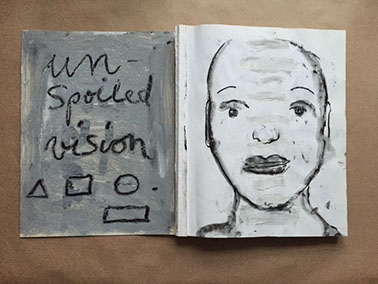 un-
spoiled
vision